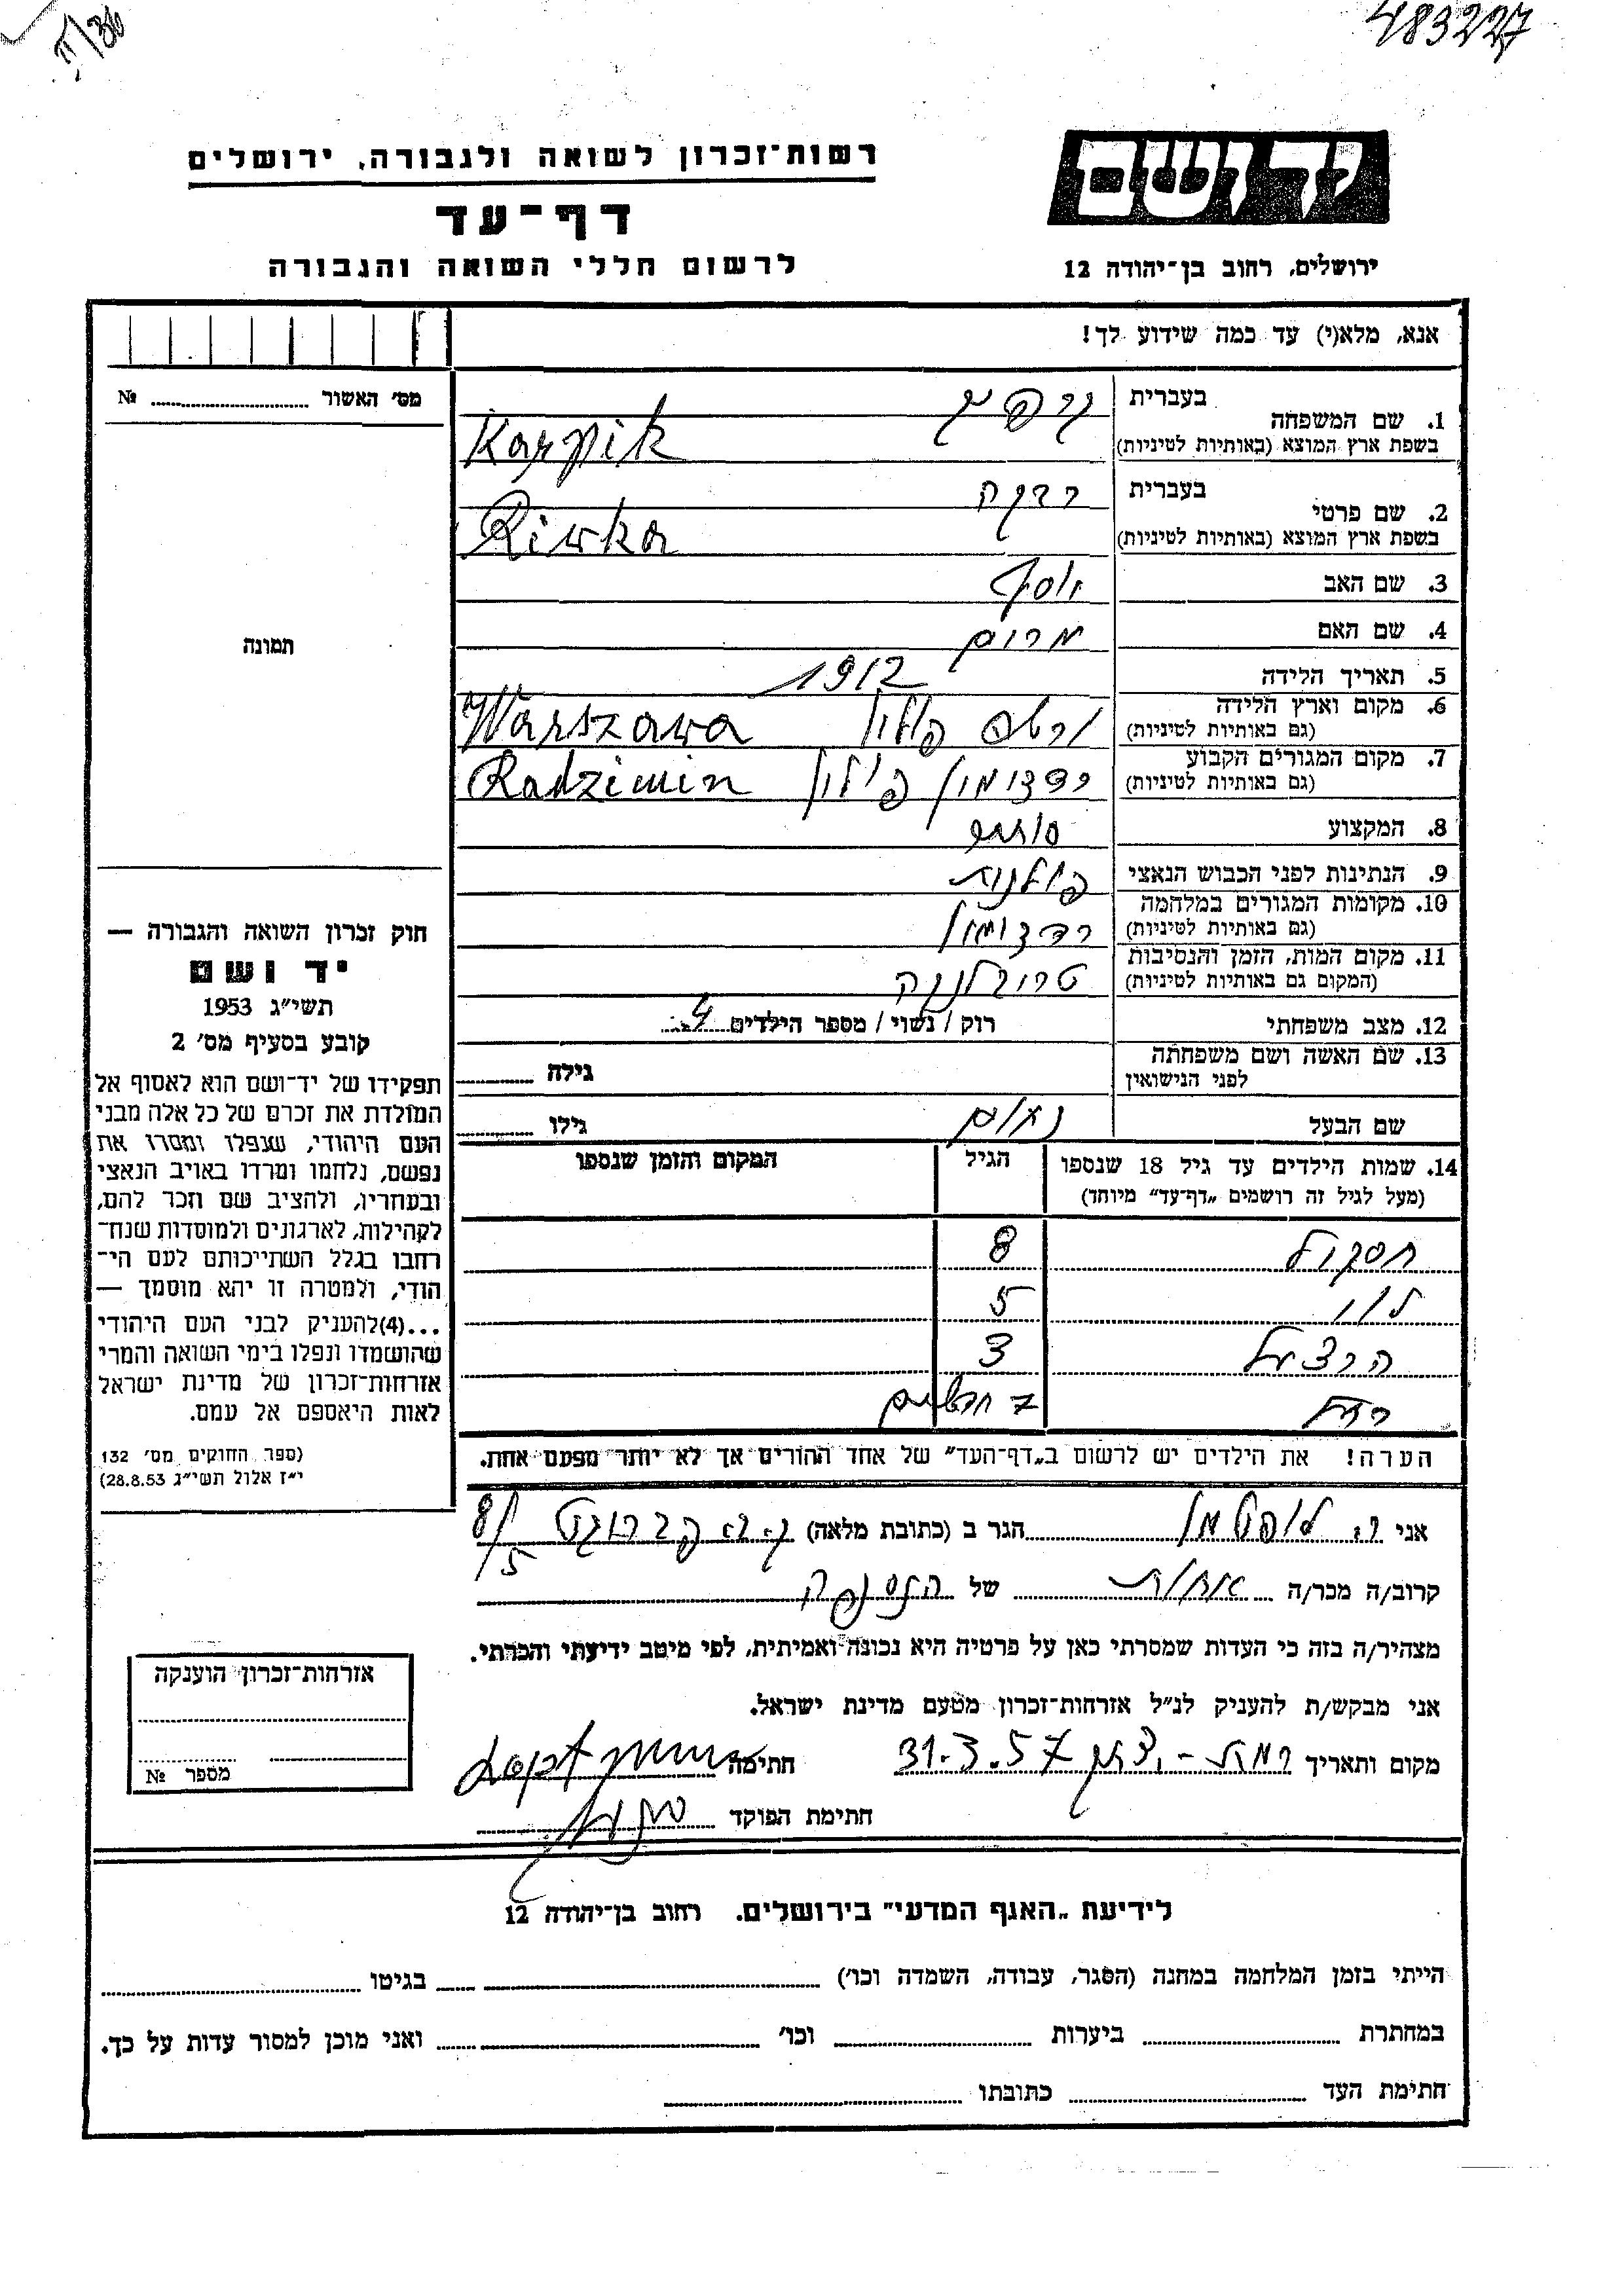 483227
יד ושם
ירושלים, רחוב בן־יהודה 12
רשות־זכרון לשואה ולגבורה, ירושלים
דף־עד
לרשום חללי השואה והגבורה
אנא, מלא(י) עד כמה שידוע לך!
1. שם המשפחה
בעברית קרפיק
בשפת ארץ המוצא (באותיות לטיניות) Karpik
2. שם פרטי
בעברית רבקה
בשפת ארץ המוצא (באותיות לטיניות) Riwka
3. שם האב יוסף
4. שם האם מרים
5. תאריך הלידה 1912
6. מקום וארץ הלידה
(גם באותיות לטיניות) ורשה פולין Warszawa
7. מקום המגורים הקבוע
(גם באותיות לטיניות) רדצימין פולין Radzimin
8. המקצוע
9. הנתינות לפני הכבוש הנאצי פולנית
10. מקומות המגורים במלחמה
(גם באותיות לטיניות) רדצימין
11. מקום המות, הזמן והנסיבות
(המקום גם באותיות לטיניות) טרבלינקה
12. מצב משפחתי רוק / נשוי / מספר הילדים 4
13. שם האשה ושם משפחתה
לפני הנישואין גילה
שם הבעל נחום גילו
14. שמות הילדים עד גיל 18 שנספו הגיל המקום והזמן שנספו
(מעל לגיל זה רושמים „דף־עד" מיוחד)
8
5
3
רחל 7 חדשים
הערה! את הילדים יש לרשום ב„דף־העד" של אחד ההורים אך לא יותר מפעם אחת.
אני לופטמן הגר ב (כתובת מלאה)
קרוב/ה מכר/ה אחות של הנספה
מצהיר/ה בזה כי העדות שמסרתי כאן על פרטיה היא נכונה ואמיתית, לפי מיטב ידיעתי והכרתי.
אני מבקש/ת להעניק לנ"ל אזרחות־זכרון מטעם מדינת ישראל.
מקום ותאריך רמת-יצחק 31.3.57 חתימה
חתימת הפוקד
מס' האשור №
תמונה
חוק זכרון השואה והגבורה —
יד ושם
תשי"ג 1953
קובע בסעיף מס' 2
תפקידו של יד־ושם הוא לאסוף אל
המולדת את זכרם של כל אלה מבני
העם היהודי, שנפלו ומסרו את
נפשם, נלחמו ומרדו באויב הנאצי
ובעוזריו, ולהציב שם וזכר להם,
לקהילות, לארגונים ולמוסדות שנח־
רחבו בגלל השתייכותם לעם הי־
הודי, ולמטרה זו יהא מוסמך —
...(4)להעניק לבני העם היהודי
שהושמדו ונפלו בימי השואה והמרי
אזרחות־זכרון של מדינת ישראל
לאות היאספם אל עמם.
(ספר החוקים מס' 132
י"ז אלול תשי"ג 28.8.53)
אזרחות־זכרון הוענקה
מספר №
לידיעת „האגף המדעי" בירושלים. רחוב בן־יהודה 12
הייתי בזמן המלחמה במחנה (הסגר, עבודה, השמדה וכו') בגיטו
במחתרת ביערות וכו' ואני מוכן למסור עדות על כך.
חתימת העד כתובתו